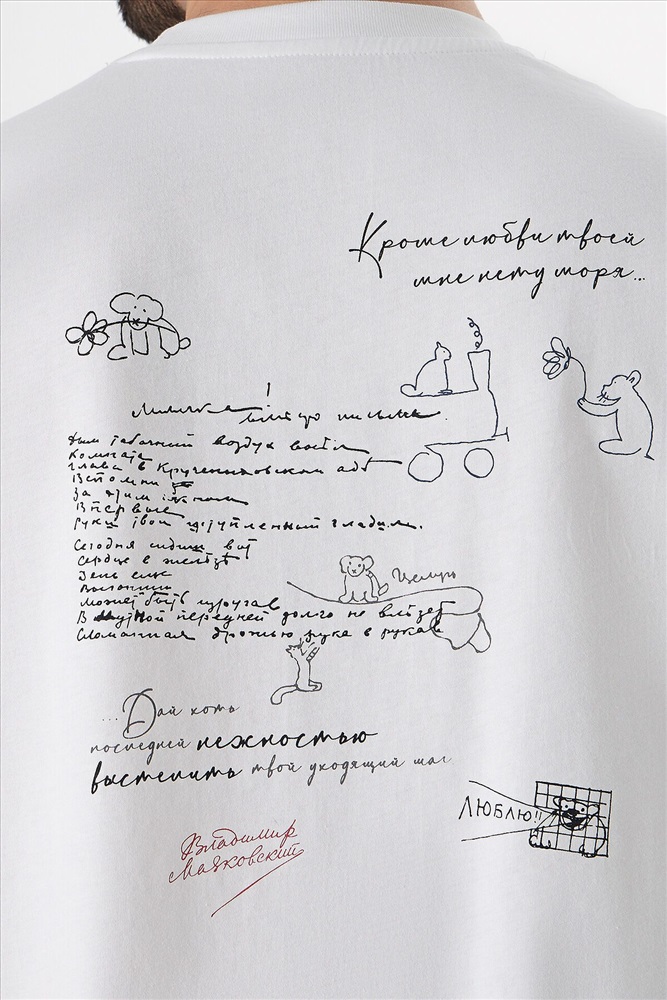 Кроме любви твоей
мне нету моря...
Лиличка!
вместо письма.
Дым табачный воздух выел
Комната
глава в Крученыховском аде
Вспомни
за этим окном
Впервые
руки твои исступленный гладил.
Сегодня сидишь вот
сердце в железе
День еще
Выгонишь
может быть изругав
В мутной передней долго не влезет
сломанная дрожью рука в рукав
Целую
...Дай хоть
последней нежностью
выстелить твой уходящий шаг
ЛЮБЛЮ!!
Владимир
Маяковский